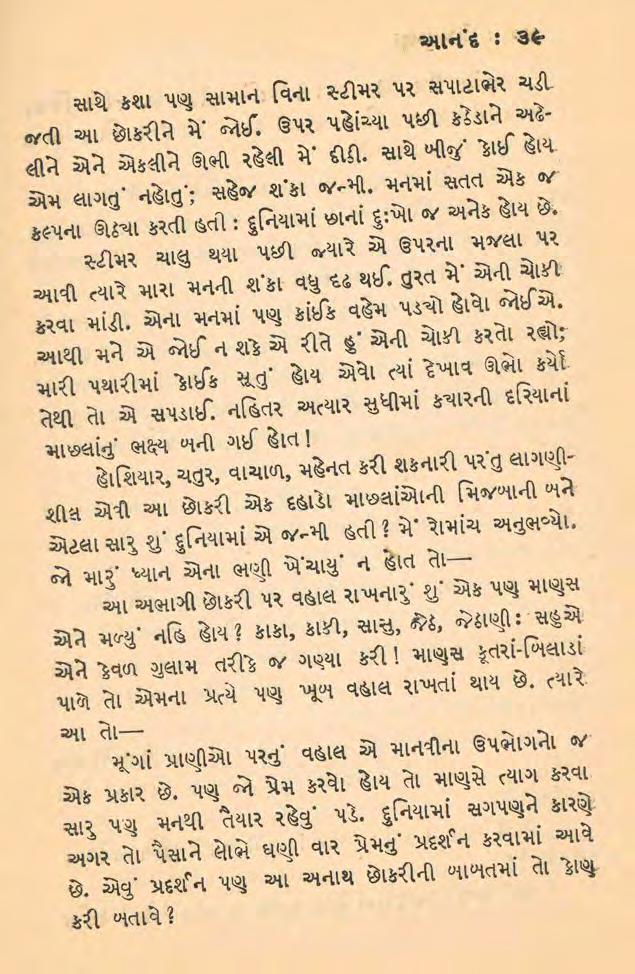 આનંદ : ૩૯
સાથે કશા પણ સામાન વિના સ્ટીમર પર સપાટાભેર ચડી
જતી આ છોકરીને મેં જોઈ. ઉપર પહોંચ્યા પછી કઠેડાને અઢે-
લીને એને એકલીને ઊભી રહેલી મેં દીઠી. સાથે બીજું કોઈ હોય
એમ લાગતું નહોતું; સહેજ શંકા જન્મી. મનમાં સતત એક જ
કલ્પના ઊઠ્યા કરતી હતી : દુનિયામાં છાનાં દુઃખો જ અનેક હોય છે.
સ્ટીમર ચાલુ થયા પછી જ્યારે એ ઉપરના મજલા પર
આવી ત્યારે મારા મનની શંકા વધુ દૃઢ થઈ. તુરત મેં એની ચોકી
કરવા માંડી. એના મનમાં પણ કાંઈક વહેમ પડ્યો હોવો જોઈએ.
આથી મને એ જોઈ ન શકે એ રીતે હું એની ચોકી કરતો રહ્યો;
મારી પથારીમાં કોઈક સૂતું હોય એવો ત્યાં દેખાવ ઊભો કર્યો
તેથી તો એ સપડાઈ. નહિતર અત્યાર સુધીમાં ક્યારની દરિયાનાં
માછલાંનું ભક્ષ્ય બની ગઈ હોત!
હોશિયાર, ચતુર, વાચાળ, મહેનત કરી શકનારી પરંતુ લાગણી-
શીલ એવી આ છોકરી એક દહાડો માછલાંઓની મિજબાની બને
એટલા સારુ શું દુનિયામાં એ જન્મી હતી? મેં રોમાંચ અનુભવ્યો.
જો મારું ધ્યાન એના ભણી ખેંચાયું ન હોત તો—
આ અભાગી છોકરી પર વહાલ રાખનારું શું એક પણ માણસ
એને મળ્યું નહિ હોય? કાકા, કાકી, સાસુ, જેઠ, જેઠાણી : સહુએ
એને કેવળ ગુલામ તરીકે જ ગણ્યા કરી! માણસ કૂતરાં-બિલાડાં
પાળે તો એમના પ્રત્યે પણ ખૂબ વહાલ રાખતાં થાય છે. ત્યારે
આ તો—
મૂંગાં પ્રાણીઓ પરનું વહાલ એ માનવીના ઉપભોગનો જ
એક પ્રકાર છે. પણ જો પ્રેમ કરવો હોય તો માણસે ત્યાગ કરવા
સારુ પણ મનથી તૈયાર રહેવું પડે. દુનિયામાં સગપણને કારણે
અગર તો પૈસાને લોભે ઘણી વાર પ્રેમનું પ્રદર્શન કરવામાં આવે
છે. એવું પ્રદર્શન પણ આ અનાથ છોકરીની બાબતમાં તો કોણ
કરી બતાવે?